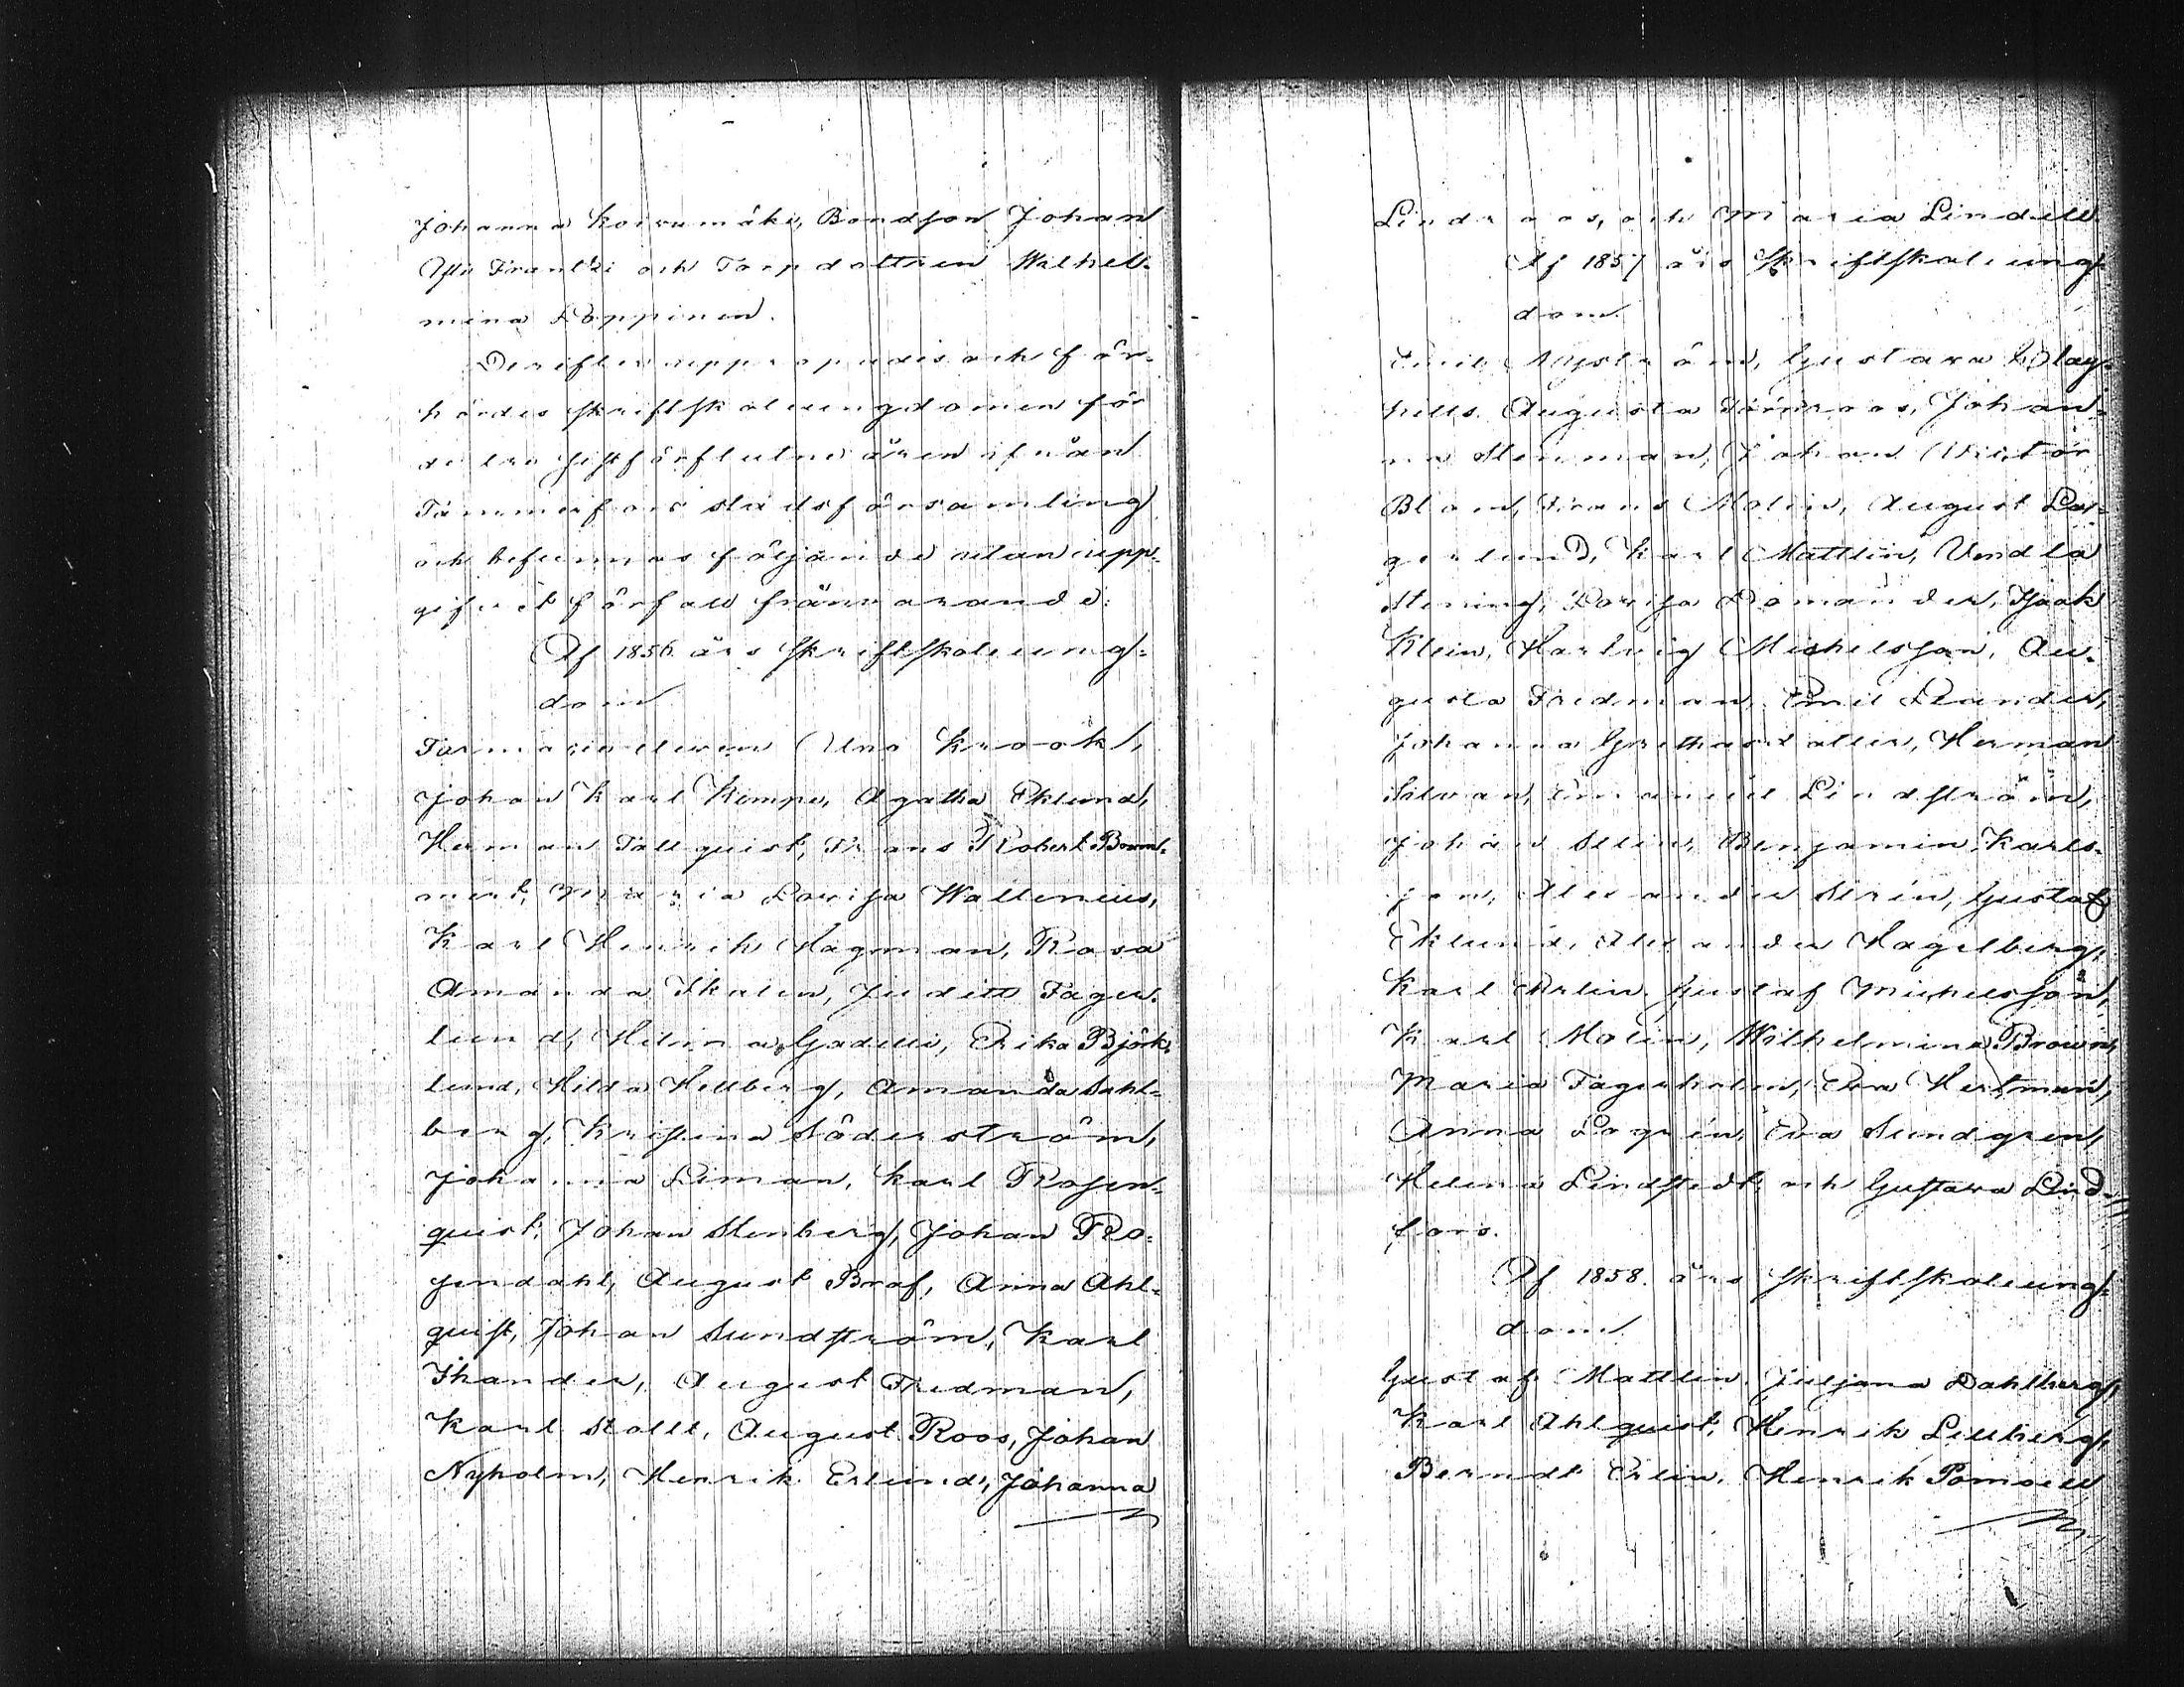 Johanna Koivumäki, Bondson Johan
Yli Frantzi och Torpdottren Wilhel-
mina Loppinen.
Derefter uppropades och för-
hördes skriftskoleungdomen för
de tre sistförflutne åren ifrån
Tammerfors stadsförsamling
och befunnos följande utan upp-
gifvet förfall frånvarande:
Af 1856 års skriftskoleung-
dom
Uno Krook,
Johan Karl Kempe, Agatha Eklund,
Herman Tallquist, Frans Robert Bomm-
mert, Maria Lovisa Wallenius,
Karl Henrik Hagman, Rosa
Amanda Ikalen, Judith Fager-
lund, Helena Gadelli, Erika Björk-
lund, Hilda Hellberg, Amanda Sahl-
berg, Kristina Söderström,
Johanna Liman, Karl Rosen-
quist, Johan Stenberg, Johan Ro-
sendahl, August Braf, Anna Ahl-
quist, Johan Sundström, Karl
Ikander, August Fredman,
Karl Stollt, August Roos, Johan
Nyholm, Henrik Erlund, Johanna
Lindroos, och Maria Lindell.
Af 1857 års skriftskoleung-
dom.
Emil Nyström, Gustava Blag-
Augusta Törnroos, Johan-
na Stenman, Johan Victor
Blom, Frans Molin, August La-
gerlund, Karl Mattlin, Vendla
Stening, Lovisa Domander, Isaak
Klein, Hartvig Michelsson, Au-
gusta Fredman, Emil Leander,
Johanna Herman
Silvan, Emanuel Lindström,
Johan Selin, Benjamin Karls-
son, Alexander Sirén, Gustaf
Eklund, Alexander Hagelberg,
Karl Arlin, Gustaf Michelsson,
Karl Molin, Wilhelmina Brown,
Maria Fagerholm, Eva Hertman,
Anna Logrén, Eva Sundgren,
Helena Lindstedt, och Gustava Lind-
fors.
Af 1858 års skriftskoleung-
dom.
Gustaf Mattlin, Juljana Dahlberg,
Karl Ahlquist, Henrik Lillberg,
Berndt Erlin, Henrik Pomoell